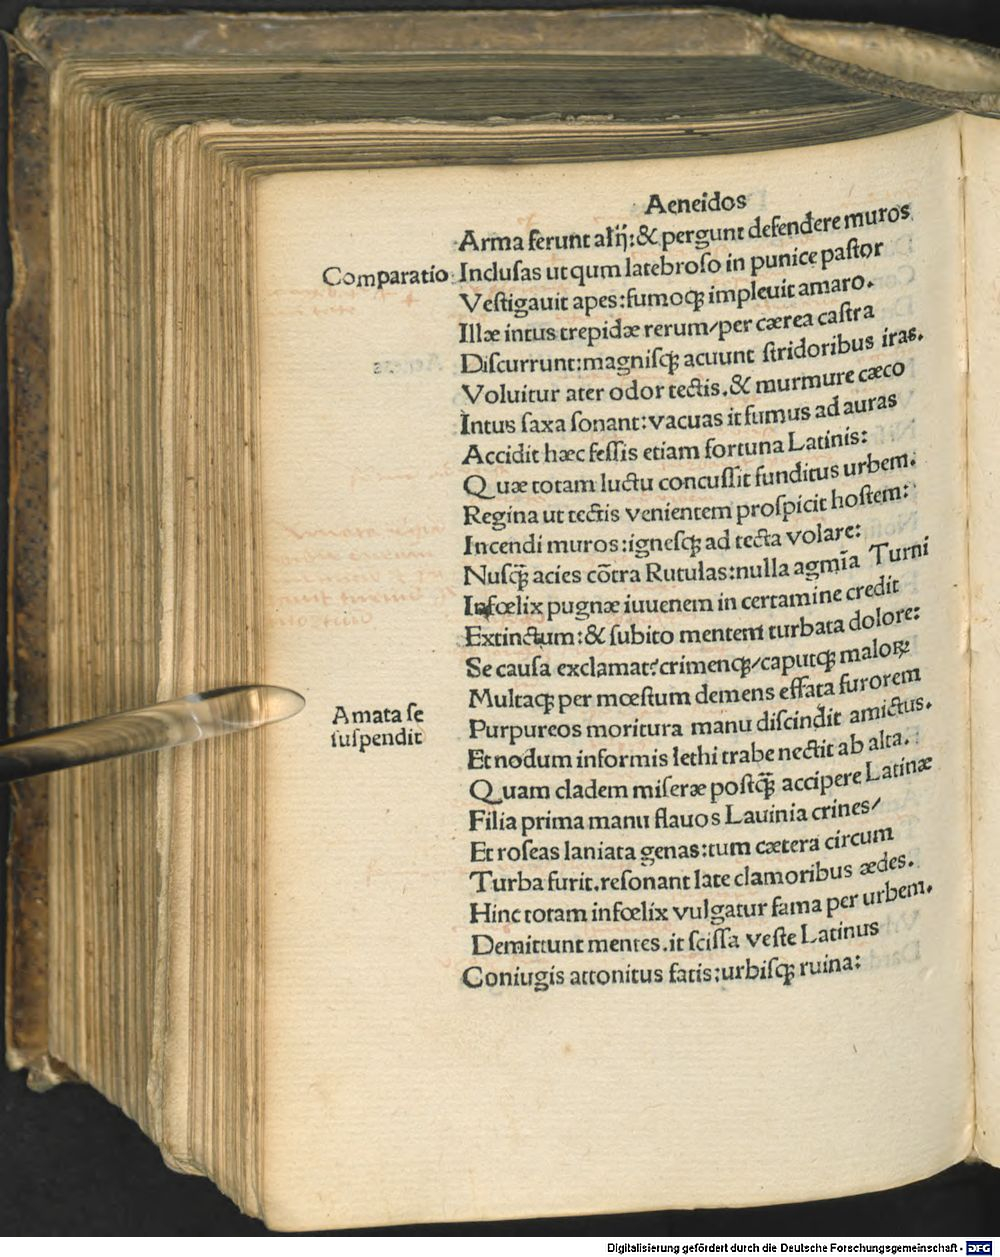 Aeneidos
Arma ferunt alij: & pergunt defendere muros
Comparatio Inclusas ut qum latebroso in punice pastor
Vestigauit apes: fumoq; impleuit amaro.
Illæ intus trepidæ rerum/per cærea castra
Discurrunt: magnisq; acuunt stridoribus iras.
Voluitur ater odor tectis. & murmure cæco
Intus saxa sonant: vacuas it fumus ad auras
Accidit hæc fessis etiam fortuna Latinis:
Quæ totam luctu concussit funditus urbem.
Regina ut tectis venientem prospicit hostem:
Incendi muros: ignesq; ad tecta volare:
Nusq̃ acies cõtra Rutulas: nulla agmĩa Turni
Infœlix pugnæ iuuenem in certamine credit
Extinctum: & subito mentem turbata dolore:
Se causa exclamat: crimenq;/caputq; maloꝝ:
Multaq; per mœstum demens effata furorem
Amata se
suspendit
Purpureos moritura manu discindit amictus.
Et nodum informis lethi trabe nectit ab alta.
Quam cladem miseræ postq̃ accipere Latinæ
Filia prima manu flauos Lauinia crines/
Et roseas laniata genas: tum cætera circum
Turba furit. resonant late clamoribus ædes.
Hinc totam infœlix vulgatur fama per urbem.
Demittunt mentes. it scissa veste Latinus
Coniugis attonitus fatis: urbisq; ruina:
Digitalisierung gefördert durch die Deutsche Forschungsgemeinschaft - DFG